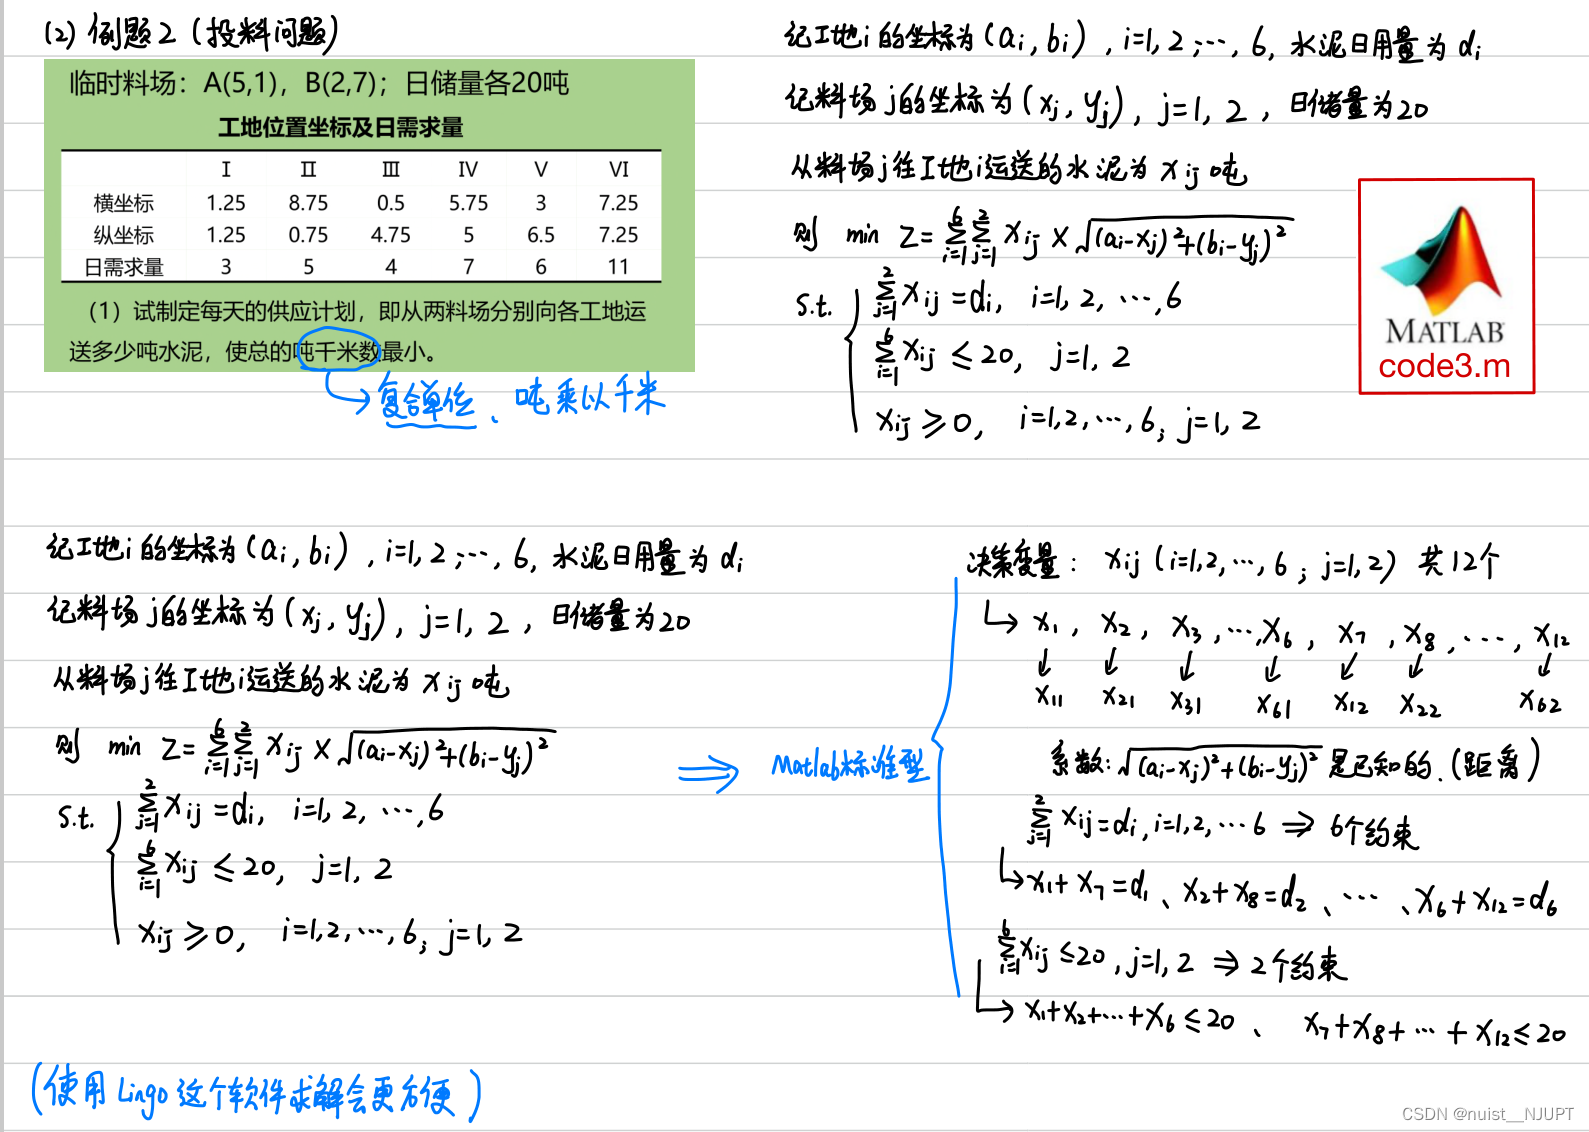 (2) 例题2 (投料问题)
临时料场：A(5,1)，B(2,7)；日储量各20吨
工地位置坐标及日需求量
I II III IV V VI
横坐标 1.25 8.75 0.5 5.75 3 7.25
纵坐标 1.25 0.75 4.75 5 6.5 7.25
日需求量 3 5 4 7 6 11
（1）试制定每天的供应计划，即从两料场分别向各工地运
送多少吨水泥，使总的吨千米数最小。
复合单位、吨乘以千米
记工地i的坐标为(ai, bi), i=1, 2, …, 6, 水泥日用量为di
记料场j的坐标为(xj, yj), j=1, 2, 日储量为20
从料场j往工地i运送的水泥为xij吨
则 min Z=∑(i=1→6)∑(j=1→2) xij × √((ai-xj)²+(bi-yj)²)
s.t. ∑(j=1→2) xij = di, i=1, 2, …, 6
∑(i=1→6) xij ≤ 20, j=1, 2
xij ≥ 0, i=1,2,…,6; j=1, 2
MATLAB
code3.m
记工地i的坐标为(ai, bi), i=1, 2, …, 6, 水泥日用量为di
记料场j的坐标为(xj, yj), j=1, 2, 日储量为20
从料场j往工地i运送的水泥为xij吨
则 min Z=∑(i=1→6)∑(j=1→2) xij × √((ai-xj)²+(bi-yj)²)
s.t. ∑(j=1→2) xij = di, i=1, 2, …, 6
∑(i=1→6) xij ≤ 20, j=1, 2
xij ≥ 0, i=1,2,…,6; j=1, 2
⇒ Matlab标准型
决策变量: xij (i=1,2,…,6; j=1,2) 共12个
↳ x1, x2, x3, …, x6, x7, x8, …, x12
↓ ↓ ↓ ↓ ↓ ↓ ↓
x11 x21 x31 x61 x12 x22 x62
系数: √((ai-xj)²+(bi-yj)²) 是已知的.(距离)
∑(j=1→2) xij=di, i=1,2,…6 ⇒ 6个约束
↳ x1+x7=d1、x2+x8=d2、…、x6+x12=d6
∑(i=1→6) xij ≤20, j=1, 2 ⇒ 2个约束
↳ x1+x2+…+x6≤20、 x7+x8+…+x12≤20
(使用Lingo这个软件求解会更方便)
CSDN @nuist__NJUPT